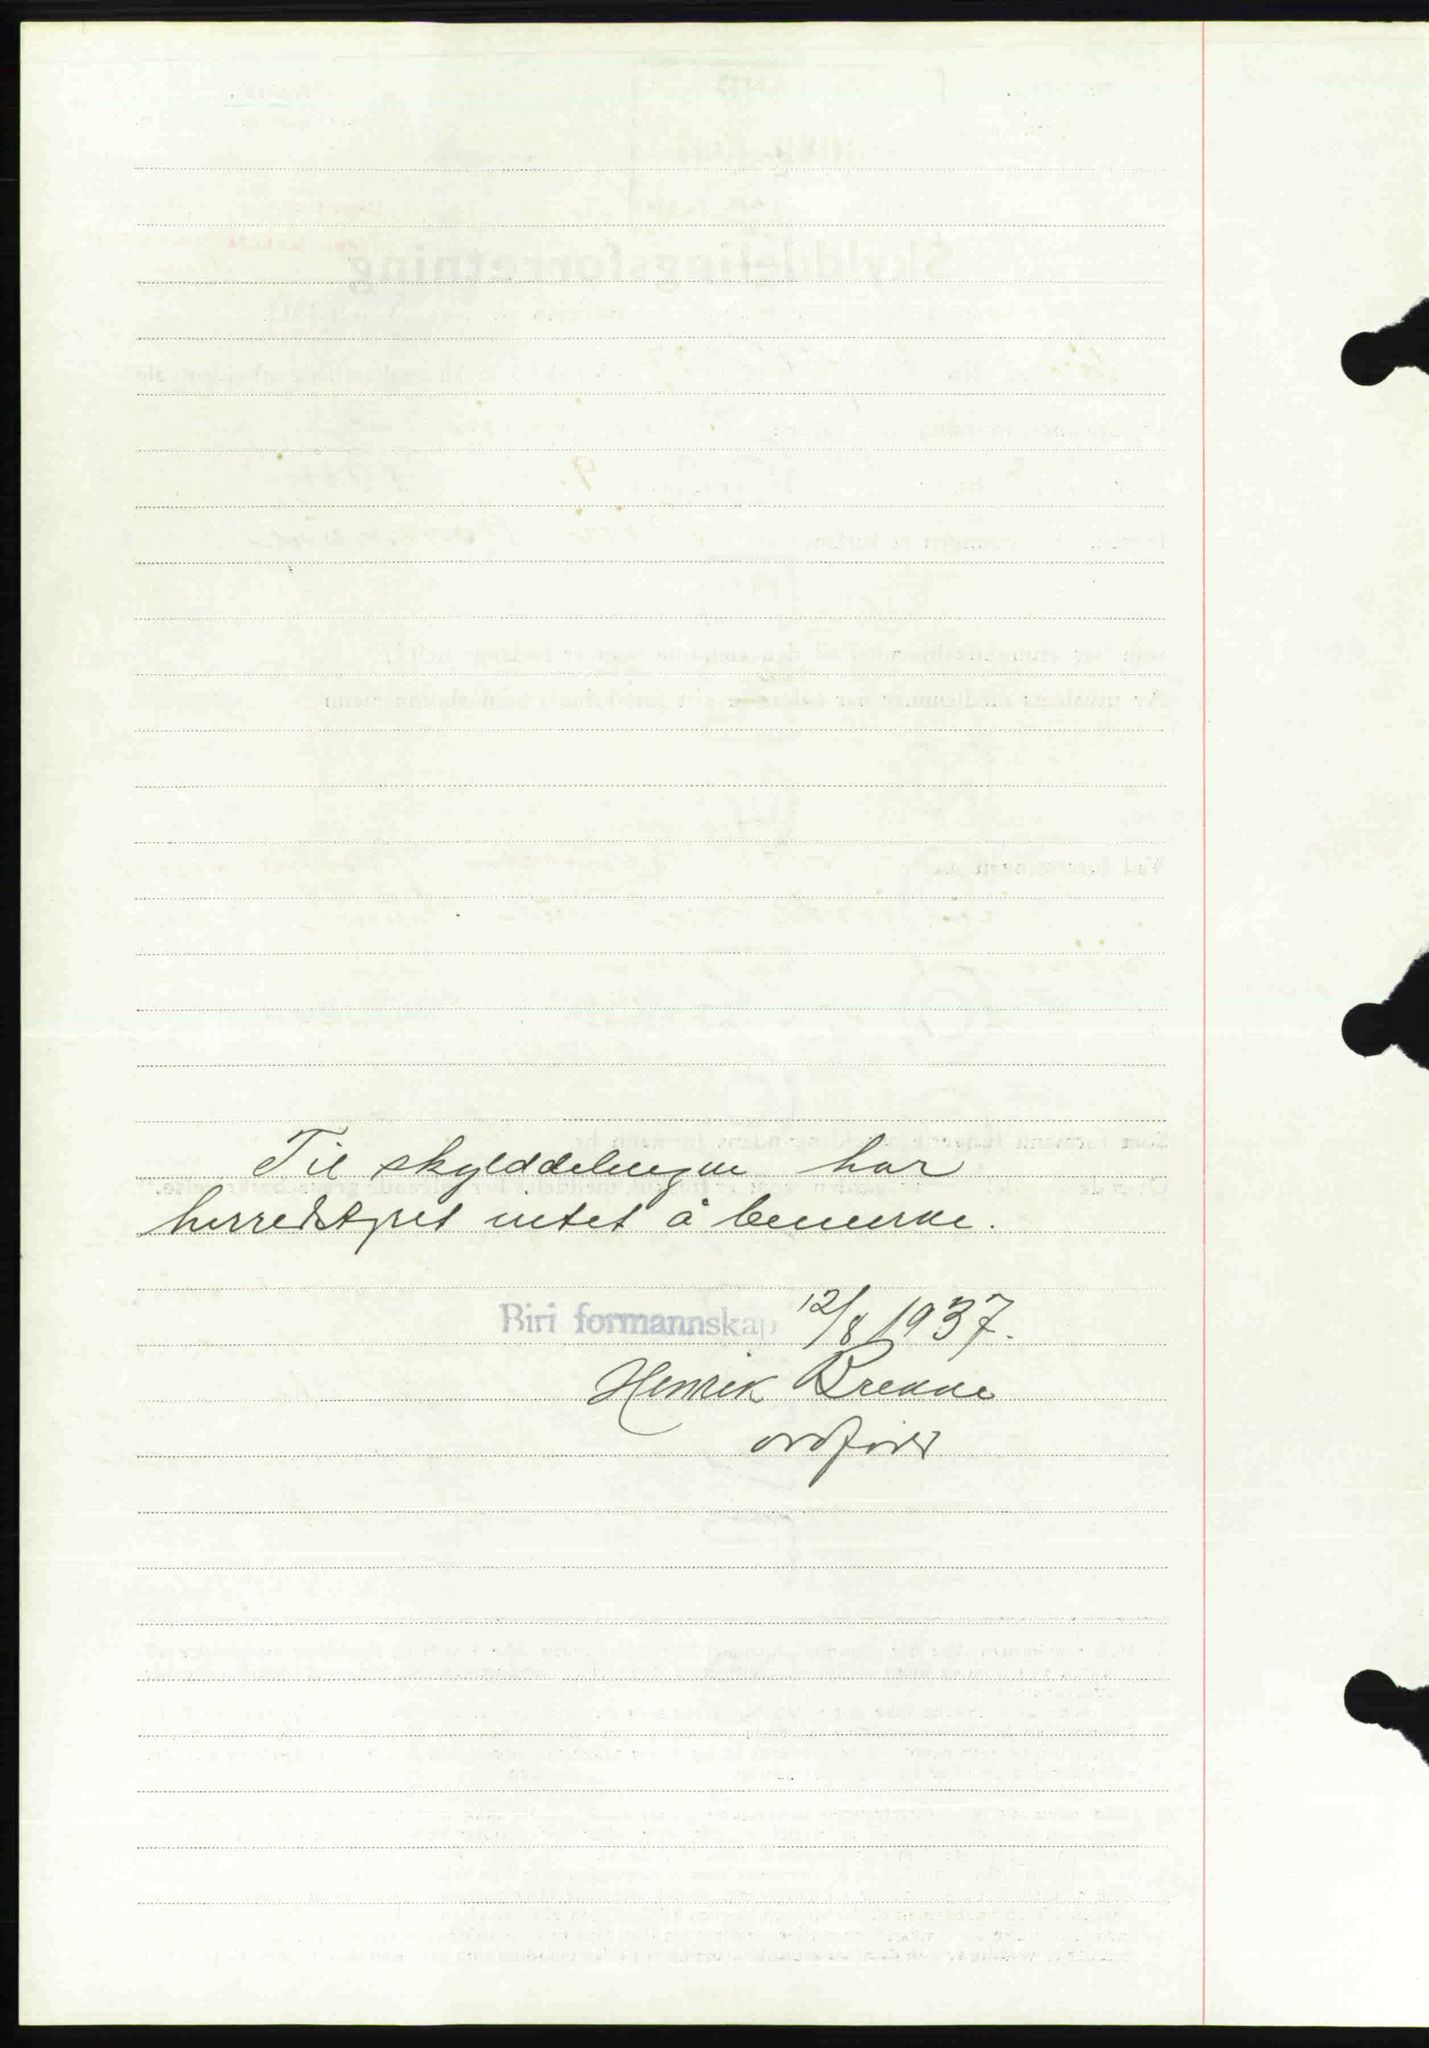 Til skylddelingen har
herredstyret intet å bemerke.
Biri formannskap 12/8 1937.
Henrik Brekke
ordfører